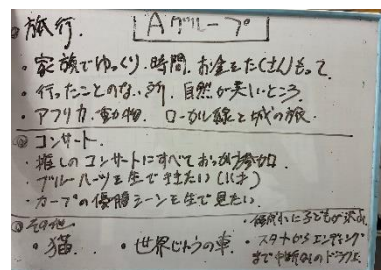 Aグループ
旅行.
・家族でゆっくり.時間.お金をたくさんもって.
・行ったことのない所.自然が美しいところ
・アフリカ.動物. ローカル線と城の旅.
② コンサート.
・推しのコンサートにすべておっかけ参加.
・ブルーハーツを生でききたい
・カープの優勝シーンを生で見たい.
③ その他
・猫.
・世界じゅうの車.
・スタートからエンディング
まで中断なしの